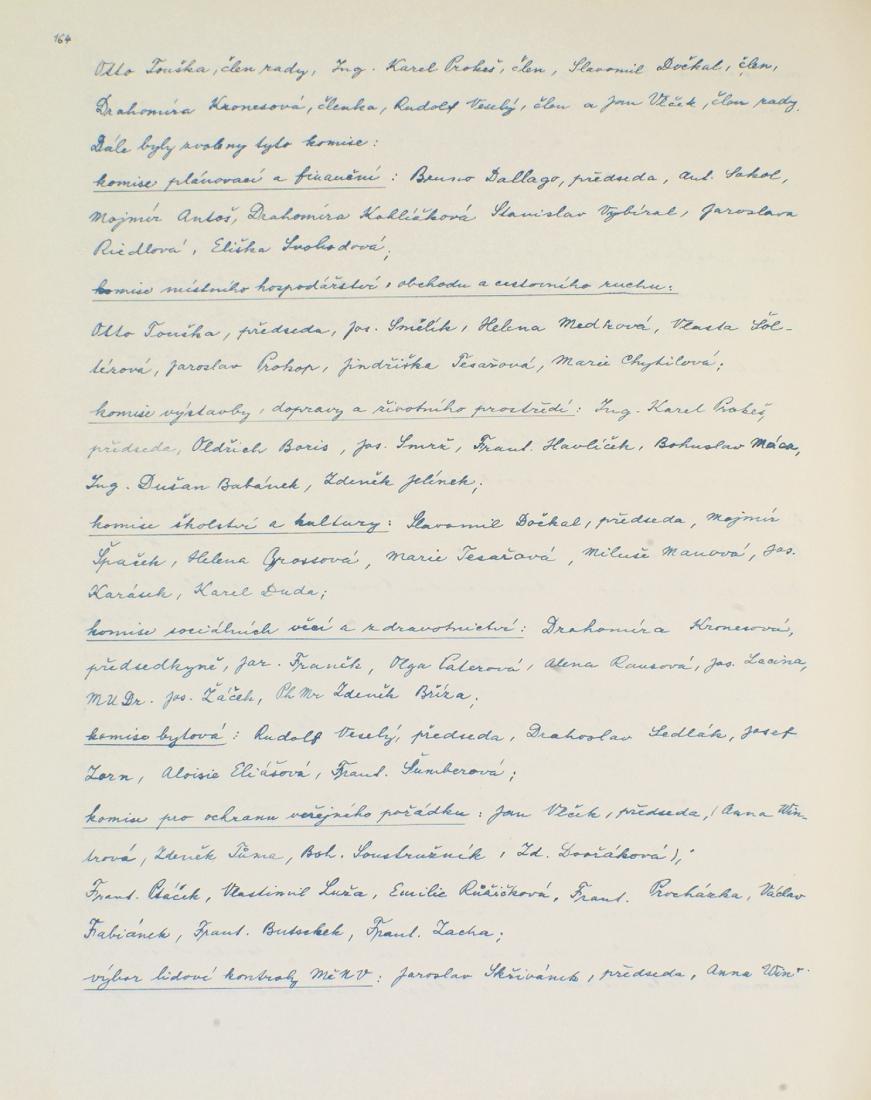 164
Otto Touška, člen rady, Ing. Karel Prokeš, člen, Slavomil Dočkal, člen,
Drahomíra Kronesová, členka, Rudolf Veselý, člen a Jan Vlček, člen rady.
Dále byly zvoleny tyto komise:
komise plánovací a finanční: Bruno Dallago, předseda, Ant. Sokol,
Mojmír Antoš, Drahomíra Kahlíčková Stanislav Vybíral, Jaroslava
Riedlová, Eliška Svobodová;
komise místního hospodářství, obchodu a cestovního ruchu:
Otto Touška, předseda, Jos. Smělík, Helena Medková, Vlasta Šol-
térová, Jaroslav Prokop, Jindřiška Tesařová, Marie Chytilová;
komise výstavby, dopravy a životního prostředí: Ing. Karel Prokeš,
předseda, Oldřich Boris, Jos. Smrž, Frant. Havlíček, Bohuslav Máca,
Ing. Dušan Babánek, Zdeněk Jelínek;
komise školství a kultury: Slavomil Dočkal, předseda, Mojmír
Špaček, Helena Grossová, Marie Tesařová, Miluše Manová, Jos.
Karásek, Karel Duda;
komise sociálních věcí a zdravotnictví: Drahomíra Kronesová,
předsedkyně, Jar. Franěk, Olga Paterová, Alena Rausová, Jos. Lacina,
MUDr. Jos. Žáček, PhMr Zdeněk Bříza;
komise bytová: Rudolf Veselý, předseda, Drahoslav Sedlák, Josef
Zorn, Aloisie Eliášová, Frant. Šumberová;
komise pro ochranu veřejného pořádku: Jan Vlček, předseda, (Anna Win-
trová, Zdeněk Tůma, Boh. Soustružník, Zd. Dvořáková),
Frant. Ptáček, Vlastimil Luža, Emilie Růžičková, Frant. Procházka, Václav
Fabiánek, Frant. Butschek, Frant. Zacha;
výbor lidové kontroly MěNV: Jaroslav Skřivánek, předseda, Anna Win-